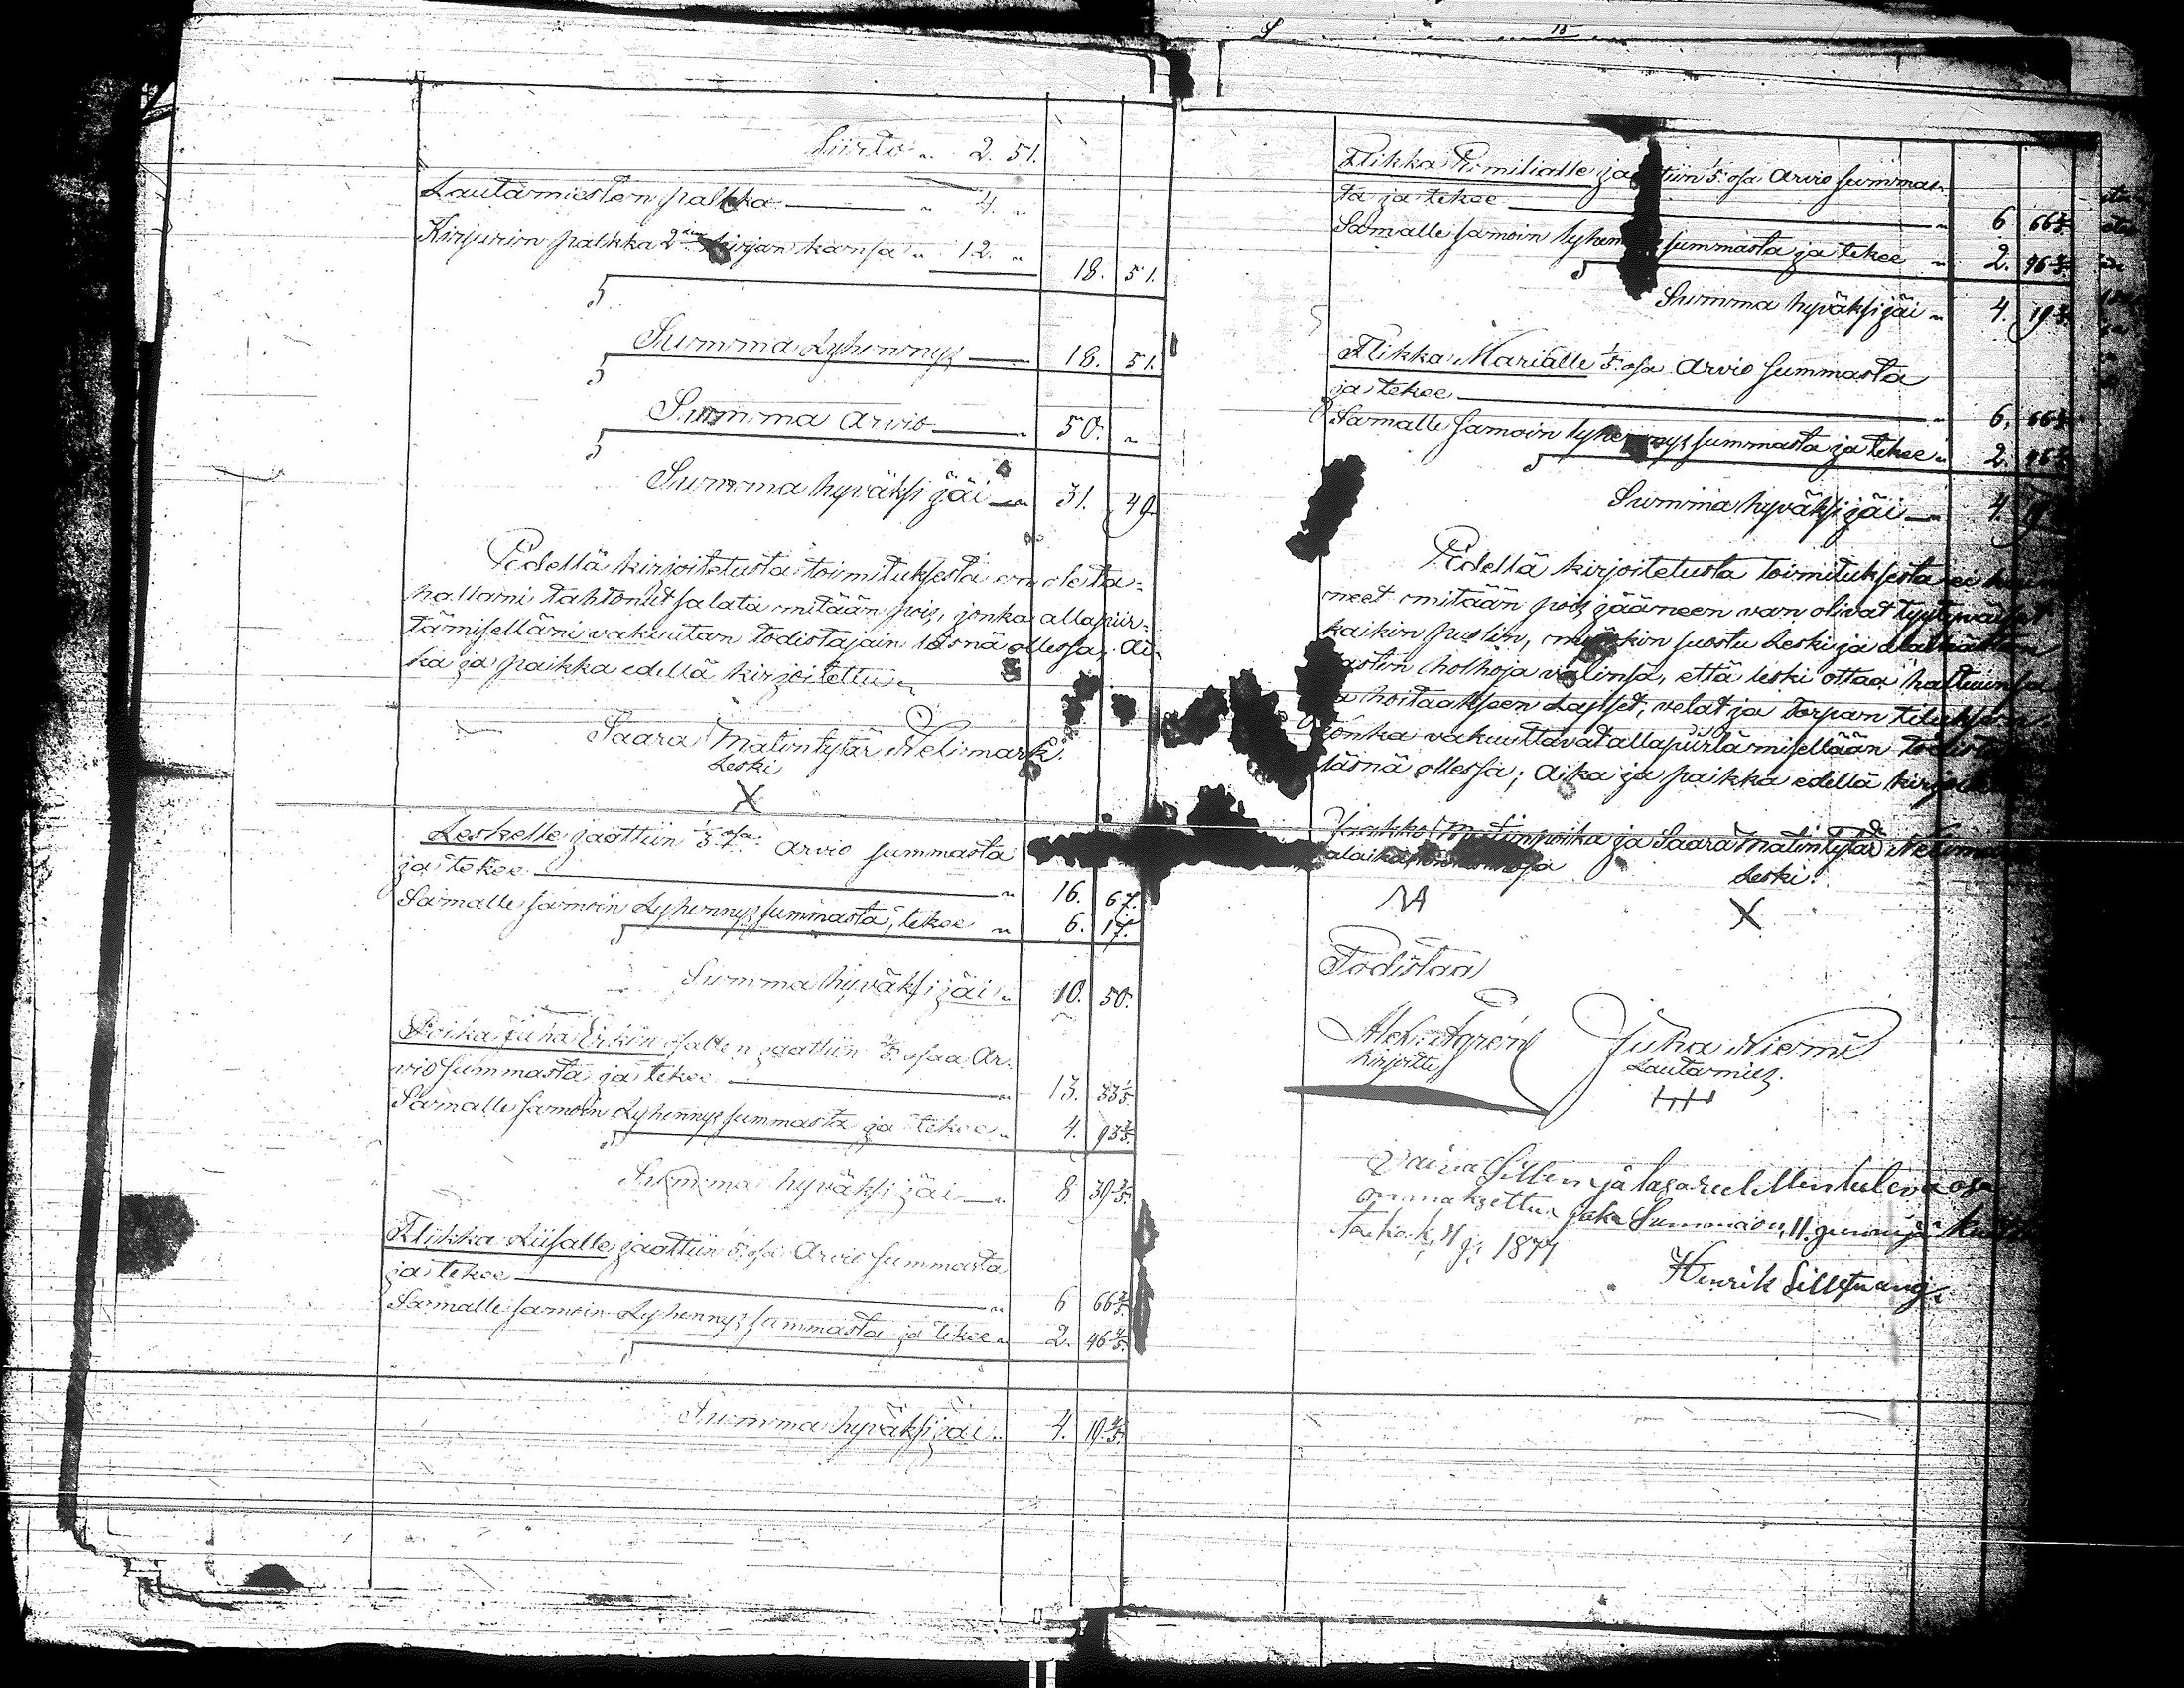 Siirto „ 2. 51.
Lautamiesten palkka — „ 4. „
Kirjurin palkka 2 kirjan kansa „ 12. „ 18. 51.
Summa Lyhennys — 18. 51.
Summa Arvio — „ 50. „
Summa hyväksi jäi — „ 31. 49.
Edellä kirjoitetusta toimituksesta en ole ta-
hallani tahtonut salata mitään pois, jonka allapiir-
tämiselläni vakuutan todistajain läsnä ollessa; Ai-
ka ja paikka edellä kirjoitettu
Saara Matintytär Nelimark.
Leski
X
Leskelle jaattiin 1/3 osa Arvio summasta
ja tekee — „ 16. 67.
Samalle samoin Lyhennys summasta, tekee „ 6. 17.
Summa hyväksi jäi „ 10. 50.
Poika Juha Erkin osallen jaattiin 2/5 osaa Ar-
vio summasta ja tekee — „ 13. 33 1/5
Samalle samoin Lyhennys summasta ja tekee „ 4. 93 3/5
Summa hyväksi jäi — „ 8 39 3/5
Flikka Liisalle jaattiin 1/5 osa Arvio summasta
ja tekee — „ 6 66 3/5
Samalle samoin Lyhennys summasta ja tekee „ 2. 46 4/5
Summa hyväksi jäi „ 4. 19 4/5
Flikka jaattiin 1/5 osa Arvio summas-
ta ja tekee — „ 6 66
Samalle samoin lyhennys summasta ja tekee „ 2. 46
Summa hyväksi jäi „ 4. 19
Flikka Marialle 1/5 osa Arvio summasta
ja tekee — „ 6. 66
Samalle samoin lyhennys summasta ja tekee „ 2. 46
Summa hyväksi jäi — „ 4. 19
Edellä kirjoitetusta toimituksesta ei
neet mitään pois jääneen van olivat tyytyväiset
kaikin puolin, myöskin suostu Leski ja alaikäisten
lasten holhoja välinsä, että leski ottaa haltuunsa
ja hoitaakseen Lapset, velat ja torpan
jonka vakuuttavat allapiirtämisellään
läsnä ollessa; Aika ja paikka edellä
Jaakko Matinpoika ja Saara Matintytär
Leski.
X
Todistaa
Alex. Agrén Juha Niemi
kirjoittu Lautamies.
Vaivasillen ja lasareetillen tuleva osa
on maksettu
1877
Henrik